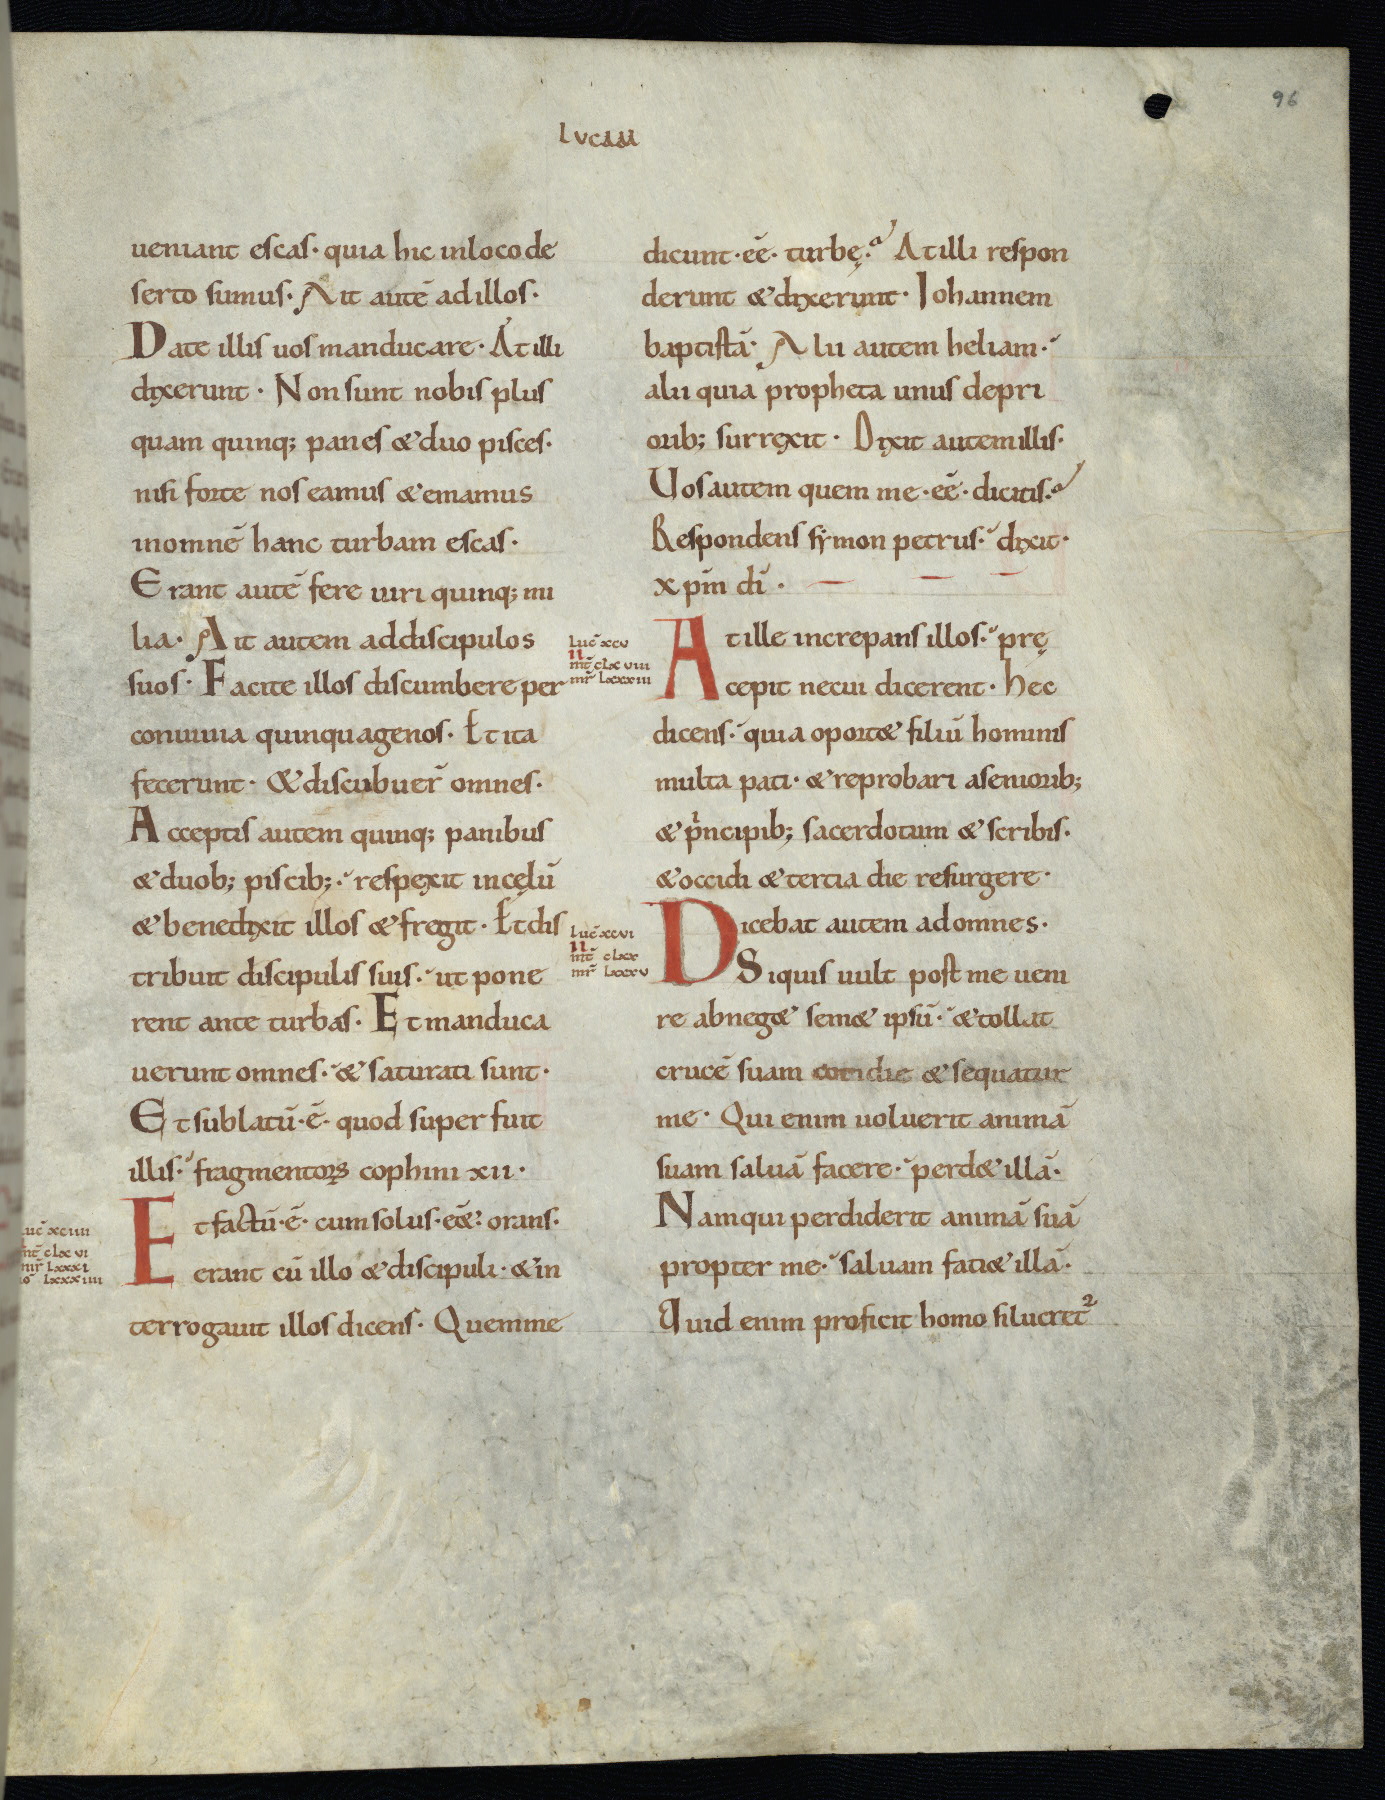 96
LVCAM
ueniant escas· quia hic inloco de
serto sumus· Ait autē ad illos·
Date illis uos manducare· At illi
dixerunt· Non sunt nobis plus
quam quinq; panes & duo pisces·
nisi forte nos eamus & emamus
inomnē hanc turbam escas·
Erant autē fere uiri quinq; mi
lia· Ait autem ad discipulos
suos· Facite illos discumbere per
conuiuia quinquagenos· Et ita
fecerunt· & discubuer̄ omnes·
Acceptis autem quinq; panibus
& duob; piscib; respexit in cęlū
& benedixit illos & fregit· Et dis
tribuit discipulis suis· ut pone
rent ante turbas· Et manduca
uerunt omnes· & saturati sunt·
Et sublatū·ē· quod super fuit
illis· fragmentoꝝ cophini xii·
luc̄ xciiii
mt̄ clxvi
mr̄ lxxxi
io̅ lxxxiiii
Et factū·ē· cum solus·eē& orans·
erant cū illo & discipuli· & in
terrogauit illos dicens· Quem me
dicunt·eē· turbę· At illi respon
derunt & dixerunt· Iohannem
baptistā· Alii autem heliam·
alii quia propheta unus de pri
orib; surrexit· Dixit autem illis·
Uos autem quem me·eē· dicitis·
Respondens symon petrus· dixit·
xpm̄ dī·
luc̄ xcv
II
mt̄ clxviii
mr̄ lxxxiii
At ille increpans illos· prę
cepit ne cui dicerent· hec
dicens· quia oport& filiū hominis
multa pati· & reprobari a seniorib;
& principib; sacerdotum & scribis·
& occidi & tertia die resurgere·
luc̄ xcvi
II
mt̄ clxx
mr̄ lxxxv
Dicebat autem ad omnes·
Si quis uult post me ueni
re abneg& sem& ipsū· & tollat
crucē suam cotidie & sequatur
me· Qui enim uoluerit animā
suam saluā facere· perd& illā·
Nam qui perdiderit animā suā
propter me· saluam faci& illā·
Quid enim proficit homo si lucret²